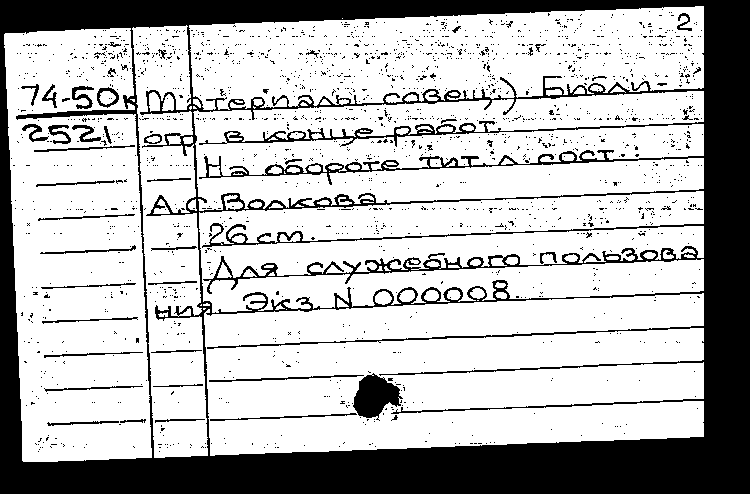 2
74-50к Материалы совещ.). Библи-
2521 огр. в конце работ.
На обороте тит. л. сост.:
А.С.Волкова.
26 см.
Для служебного пользова
ния. Экз. N 000008.